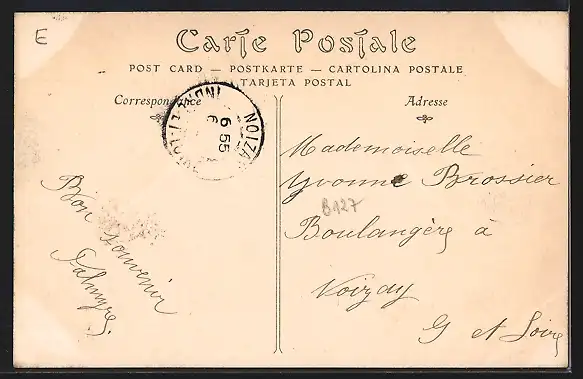 E
Carte Postale
POST CARD — POSTKARTE — CARTOLINA POSTALE
TARJETA POSTAL
Correspondance
Adresse
NOIZAY
INDRE-ET-LOIRE
6 55
6
Mademoiselle
Yvonne Brossier
B127
Boulangère à
Noizay
I et Loire
Bon souvenir
Palmyre.